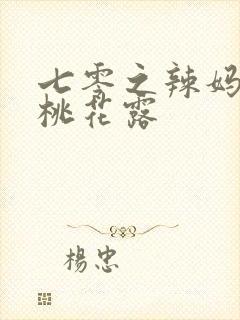 七零之辣妈
桃花露
楊忠